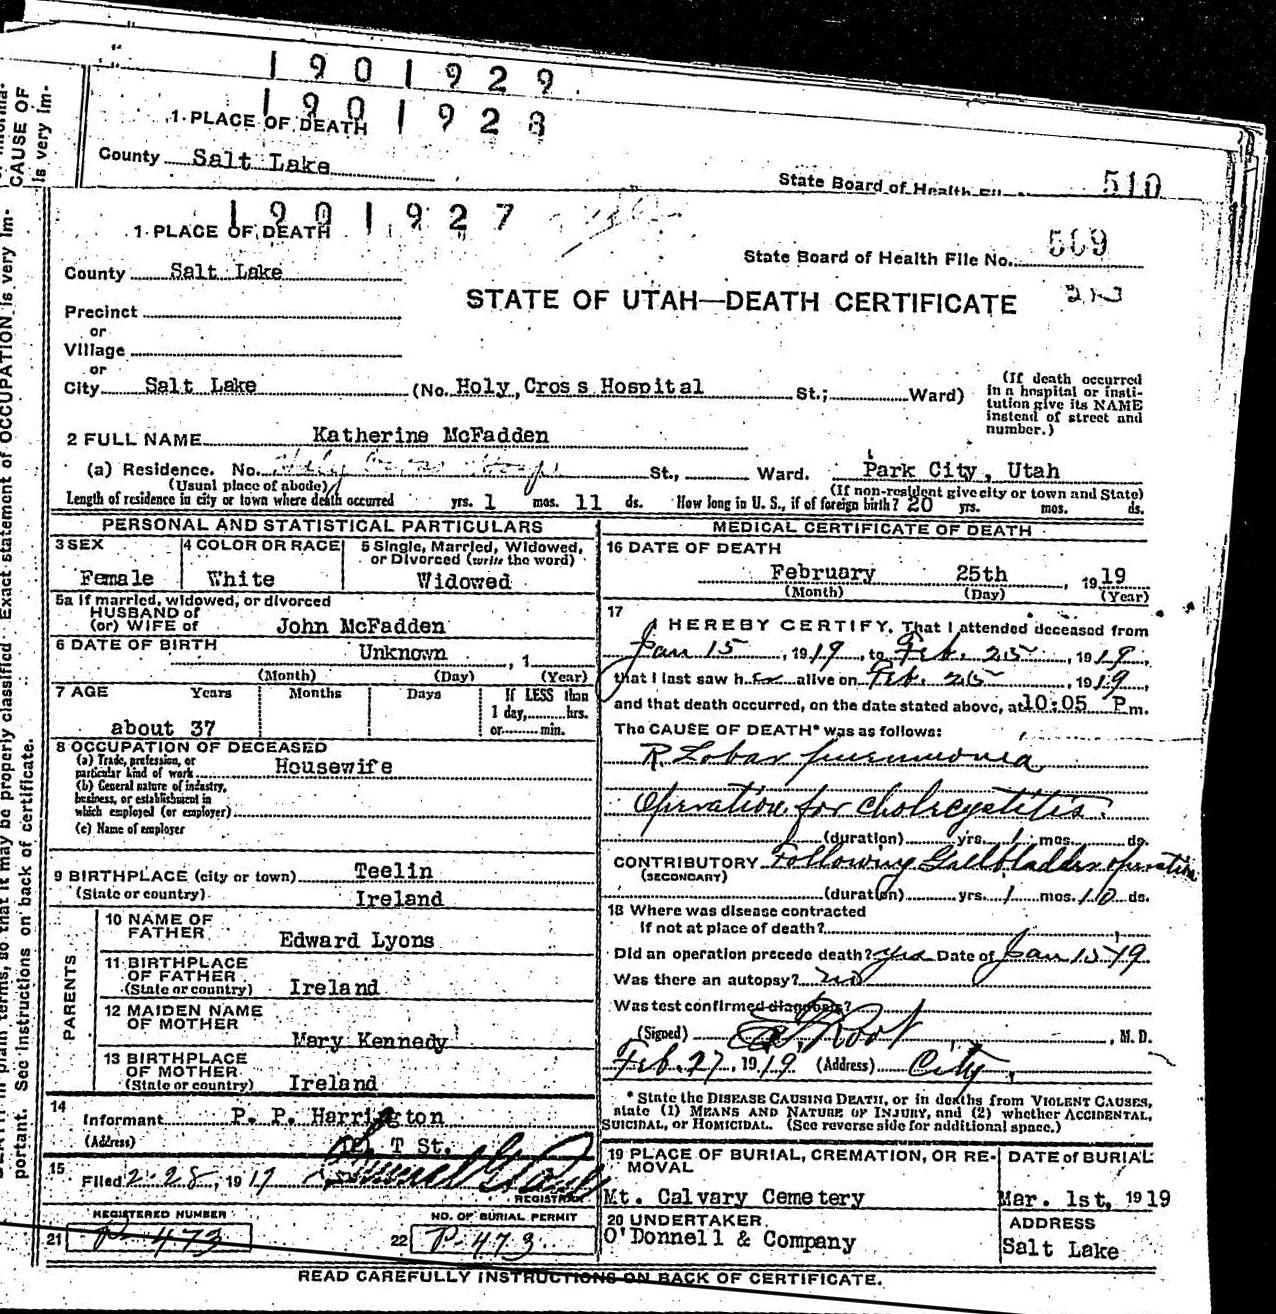 1901929
1901928
1 PLACE OF DEATH
County Salt Lake
State Board of Health Fil
510
1901927
1 PLACE OF DEATH
State Board of Health File No. 509
County Salt Lake
STATE OF UTAH—DEATH CERTIFICATE
Precinct
or
Village
or
City Salt Lake (No. Holy Cross Hospital St.; Ward)
(If death occurred in a hospital or insti-
tution give its NAME
instead of street and
number.)
2 FULL NAME Katherine McFadden
(a) Residence. No. St., Ward. Park City, Utah
(Usual place of abode) (If non-resident give city or town and State)
Length of residence in city or town where death occurred yrs. 1 mos. 11 ds. How long in U. S., if of foreign birth? 20 yrs. mos. ds.
PERSONAL AND STATISTICAL PARTICULARS
3 SEX Female
4 COLOR OR RACE White
5 Single, Married, Widowed,
or Divorced (write the word)
Widowed
5a If married, widowed, or divorced
HUSBAND of
(or) WIFE of John McFadden
6 DATE OF BIRTH Unknown, 1
(Month) (Day) (Year)
7 AGE Years Months Days If LESS than
1 day, hrs.
or min.
about 37
8 OCCUPATION OF DECEASED
(a) Trade, profession, or
particular kind of work Housewife
(b) General nature of industry,
business, or establishment in
which employed (or employer)
(c) Name of employer
9 BIRTHPLACE (city or town) Teelin
(State or country) Ireland
PARENTS
10 NAME OF
FATHER Edward Lyons
11 BIRTHPLACE
OF FATHER
(State or country) Ireland
12 MAIDEN NAME
OF MOTHER Mary Kennedy
13 BIRTHPLACE
OF MOTHER
(State or country) Ireland
14
Informant P. P. Harrington
(Address) T St.
15
Filed 2-28, 1919
REGISTRAR
REGISTERED NUMBER
21 P-473
NO. OF BURIAL PERMIT
22 P-473
MEDICAL CERTIFICATE OF DEATH
16 DATE OF DEATH
February 25th, 1919
(Month) (Day) (Year)
17
I HEREBY CERTIFY, That I attended deceased from
Jan 15, 1919, to Feb. 25, 1919,
that I last saw her alive on Feb. 25, 1919,
and that death occurred, on the date stated above, at 10:05 P m.
The CAUSE OF DEATH* was as follows:
R. Lobar pneumonia
Operation for cholecystitis.
(duration) yrs. 1 mos. ds.
CONTRIBUTORY Following Gallbladder operation
(SECONDARY)
(duration) yrs. 1 mos. 10 ds.
18 Where was disease contracted
if not at place of death?
Did an operation precede death? yes Date of Jan 15-19
Was there an autopsy? no
Was test confirmed diagnosis?
(Signed) Root, M.D.
Feb. 27, 1919 (Address) City.
* State the DISEASE CAUSING DEATH, or in deaths from VIOLENT CAUSES,
state (1) MEANS AND NATURE OF INJURY, and (2) whether ACCIDENTAL,
SUICIDAL, or HOMICIDAL. (See reverse side for additional space.)
19 PLACE OF BURIAL, CREMATION, OR RE-
MOVAL
Mt. Calvary Cemetery
DATE of BURIAL
Mar. 1st, 1919
20 UNDERTAKER
O'Donnell & Company
ADDRESS
Salt Lake
READ CAREFULLY INSTRUCTIONS ON BACK OF CERTIFICATE.
CAUSE OF
is very im-
in plain terms, so that it may be properly classified. Exact statement of OCCUPATION is very im-
portant. See instructions on back of certificate.